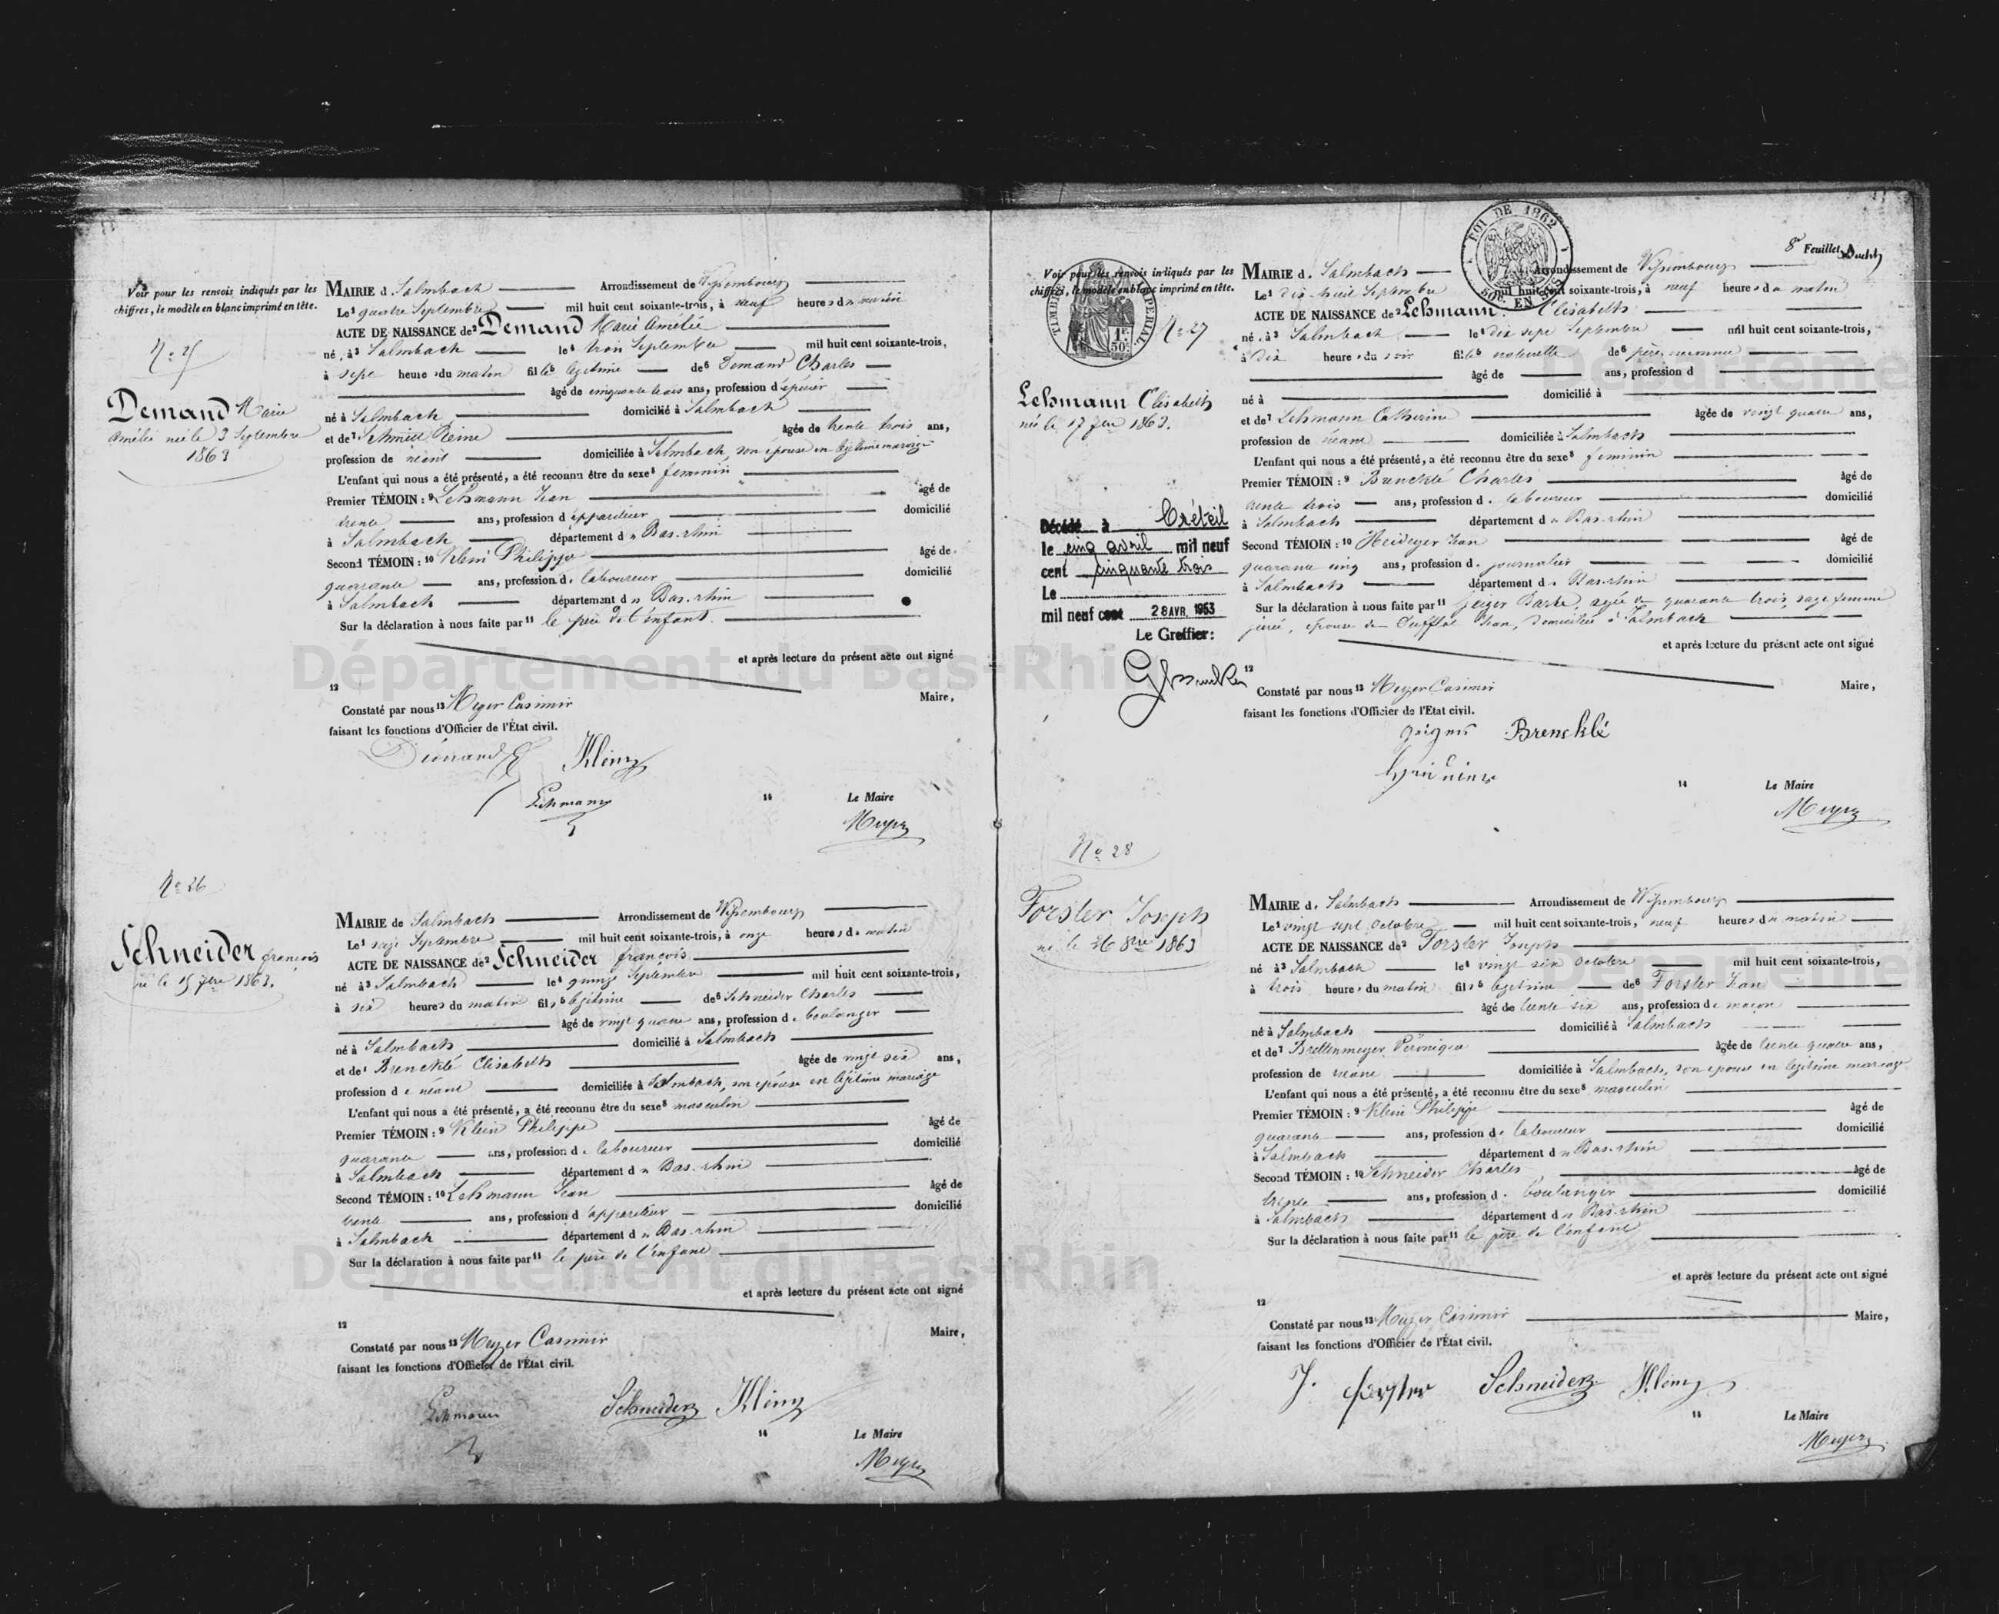 Voir pour les renvois indiqués par les
chiffres, le modèle en blanc imprimé en tête.
Demand Marie
Amélie née le 3 Septembre
1863
MAIRIE d. Salmbach Arrondissement de Wissembourg
Le¹ quatre Septembre mil huit cent soixante-trois, à neuf heures du matin
ACTE DE NAISSANCE de² Demand Marie Amélie
né, à³ Salmbach le⁴ trois Septembre mil huit cent soixante-trois,
à sept heures du matin fille⁵ légitime de⁶ Demand Charles
âgé de cinquante trois ans, profession d'épicier
né à Salmbach domicilié à Salmbach
et de⁷ Schmitt Reine âgée de trente trois ans,
profession de néant domiciliée à Salmbach, son épouse en légitime mariage
L'enfant qui nous a été présenté, a été reconnu être du sexe⁸ féminin
Premier TÉMOIN : ⁹ Lehmann Jean âgé de
trente ans, profession d'appariteur domicilié
à Salmbach département du Bas-rhin
Second TÉMOIN : ¹⁰ Klein Philippe âgé de
quarante ans, profession de laboureur domicilié
à Salmbach département du Bas-rhin
Sur la déclaration à nous faite par¹¹ le père de l'enfant.
et après lecture du présent acte ont signé
12
Constaté par nous¹³ Meyer Casimir Maire,
faisant les fonctions d'Officier de l'État civil.
Klein
Lehmann
14 Le Maire
Meyer
No 26
Schneider françois
né le 15 7bre 1863.
MAIRIE de Salmbach Arrondissement de Wissembourg
Le¹ seize Septembre mil huit cent soixante-trois, à onze heures du matin
ACTE DE NAISSANCE de² Schneider françois
né à³ Salmbach le⁴ quinze Septembre mil huit cent soixante-trois,
à six heures du matin fils⁵ légitime de⁶ Schneider Charles
âgé de vingt quatre ans, profession de boulanger
né à Salmbach domicilié à Salmbach
et de⁷ Brencklé Elisabeth âgée de vingt six ans,
profession de néant domiciliée à Salmbach, son épouse en légitime mariage
L'enfant qui nous a été présenté, a été reconnu être du sexe⁸ masculin
Premier TÉMOIN : ⁹ Klein Philippe âgé de
quarante ans, profession de laboureur domicilié
à Salmbach département du Bas-rhin
Second TÉMOIN : ¹⁰ Lehmann Jean âgé de
trente ans, profession d'appariteur domicilié
à Salmbach département du Bas-rhin
Sur la déclaration à nous faite par¹¹ le père de l'enfant
et après lecture du présent acte ont signé
12
Constaté par nous¹³ Meyer Casimir Maire,
faisant les fonctions d'Officier de l'État civil.
Lehmann Schneider Klein
14 Le Maire
Meyer
8e Feuillet
LOI DE 1862
50c. EN SUS
TIMBRE IMPÉRIAL
1F. 50c.
Voir pour les renvois indiqués par les
chiffres, le modèle en blanc imprimé en tête.
No 27
Lehmann Elisabeth
née le 17 7bre 1863.
Décédé à Créteil
le cinq avril mil neuf
cent cinquante trois
Le
mil neuf cent 28 AVR. 1953
Le Greffier :
MAIRIE d. Salmbach Arrondissement de Wissembourg
Le¹ dix huit Septembre mil huit cent soixante-trois, à neuf heures du matin
ACTE DE NAISSANCE de² Lehmann Elisabeth
né, à³ Salmbach le⁴ dix sept Septembre mil huit cent soixante-trois,
à dix heures du soir fille⁵ naturelle de⁶ père inconnu
âgé de ans, profession d
né à domicilié à
et de⁷ Lehmann Catherine âgée de vingt quatre ans,
profession de néant domiciliée à Salmbach
L'enfant qui nous a été présenté, a été reconnu être du sexe⁸ féminin
Premier TÉMOIN : ⁹ Brencklé Charles âgé de
trente trois ans, profession de laboureur domicilié
à Salmbach département du Bas-rhin
Second TÉMOIN : ¹⁰ Jean âgé de
quarante cinq ans, profession de journalier domicilié
à Salmbach département du Bas-rhin
Sur la déclaration à nous faite par¹¹ Geiger âgée de quarante trois, sage femme
jurée, épouse de Jean, domiciliée à Salmbach
et après lecture du présent acte ont signé
12
Constaté par nous¹³ Meyer Casimir Maire,
faisant les fonctions d'Officier de l'État civil.
Brencklé
14 Le Maire
Meyer
No 28
Forster Joseph
né le 26 8bre 1863
MAIRIE d. Salmbach Arrondissement de Wissembourg
Le¹ vingt sept Octobre mil huit cent soixante-trois, neuf heures du matin
ACTE DE NAISSANCE de² Forster Joseph
né à³ Salmbach le⁴ vingt six Octobre mil huit cent soixante-trois,
à trois heures du matin fils⁵ légitime de⁶ Forster Jean
âgé de trente six ans, profession de maçon
né à Salmbach domicilié à Salmbach
et de⁷ Brettenmeyer Véronique âgée de trente quatre ans,
profession de néant domiciliée à Salmbach, son épouse en légitime mariage
L'enfant qui nous a été présenté, a été reconnu être du sexe⁸ masculin
Premier TÉMOIN : ⁹ Klein Philippe âgé de
quarante ans, profession de laboureur domicilié
à Salmbach département du Bas-rhin
Second TÉMOIN : ¹⁰ Schneider Charles âgé de
ans, profession d. boulanger domicilié
à Salmbach département du Bas-rhin
Sur la déclaration à nous faite par¹¹ le père de l'enfant
et après lecture du présent acte ont signé
12
Constaté par nous¹³ Meyer Casimir Maire,
faisant les fonctions d'Officier de l'État civil.
J. Forster Schneider Klein
14 Le Maire
Meyer
Département du Bas-Rhin
Département du Bas-Rhin